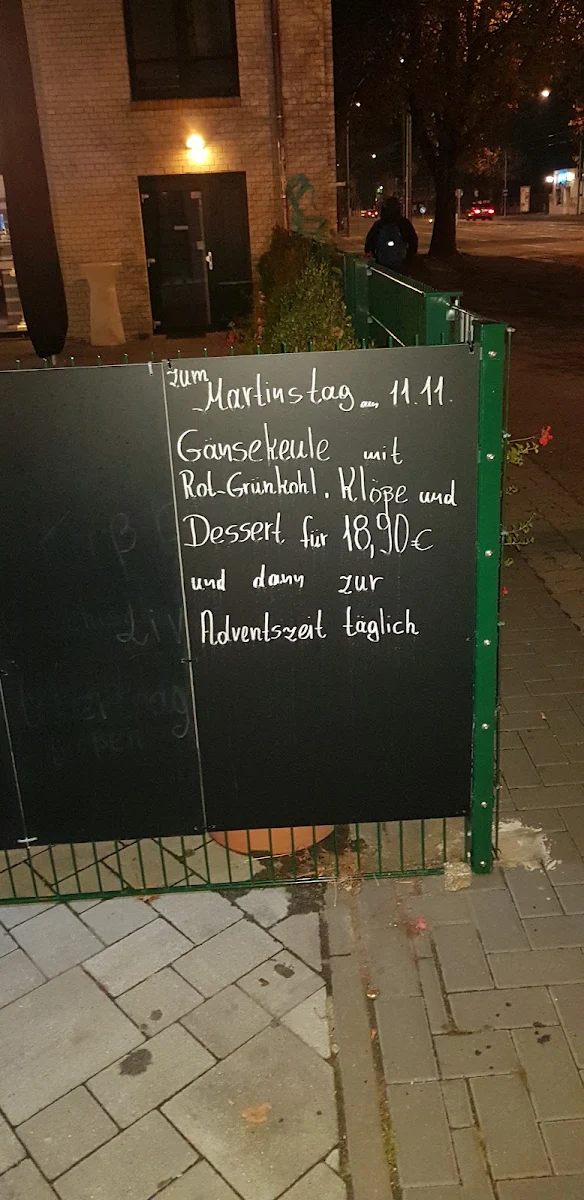 zum
Martinstag am 11.11.
Gänsekeule mit
Rot-Grünkohl, Klöße und
Dessert für 18,90€
und dann zur
Adventszeit täglich